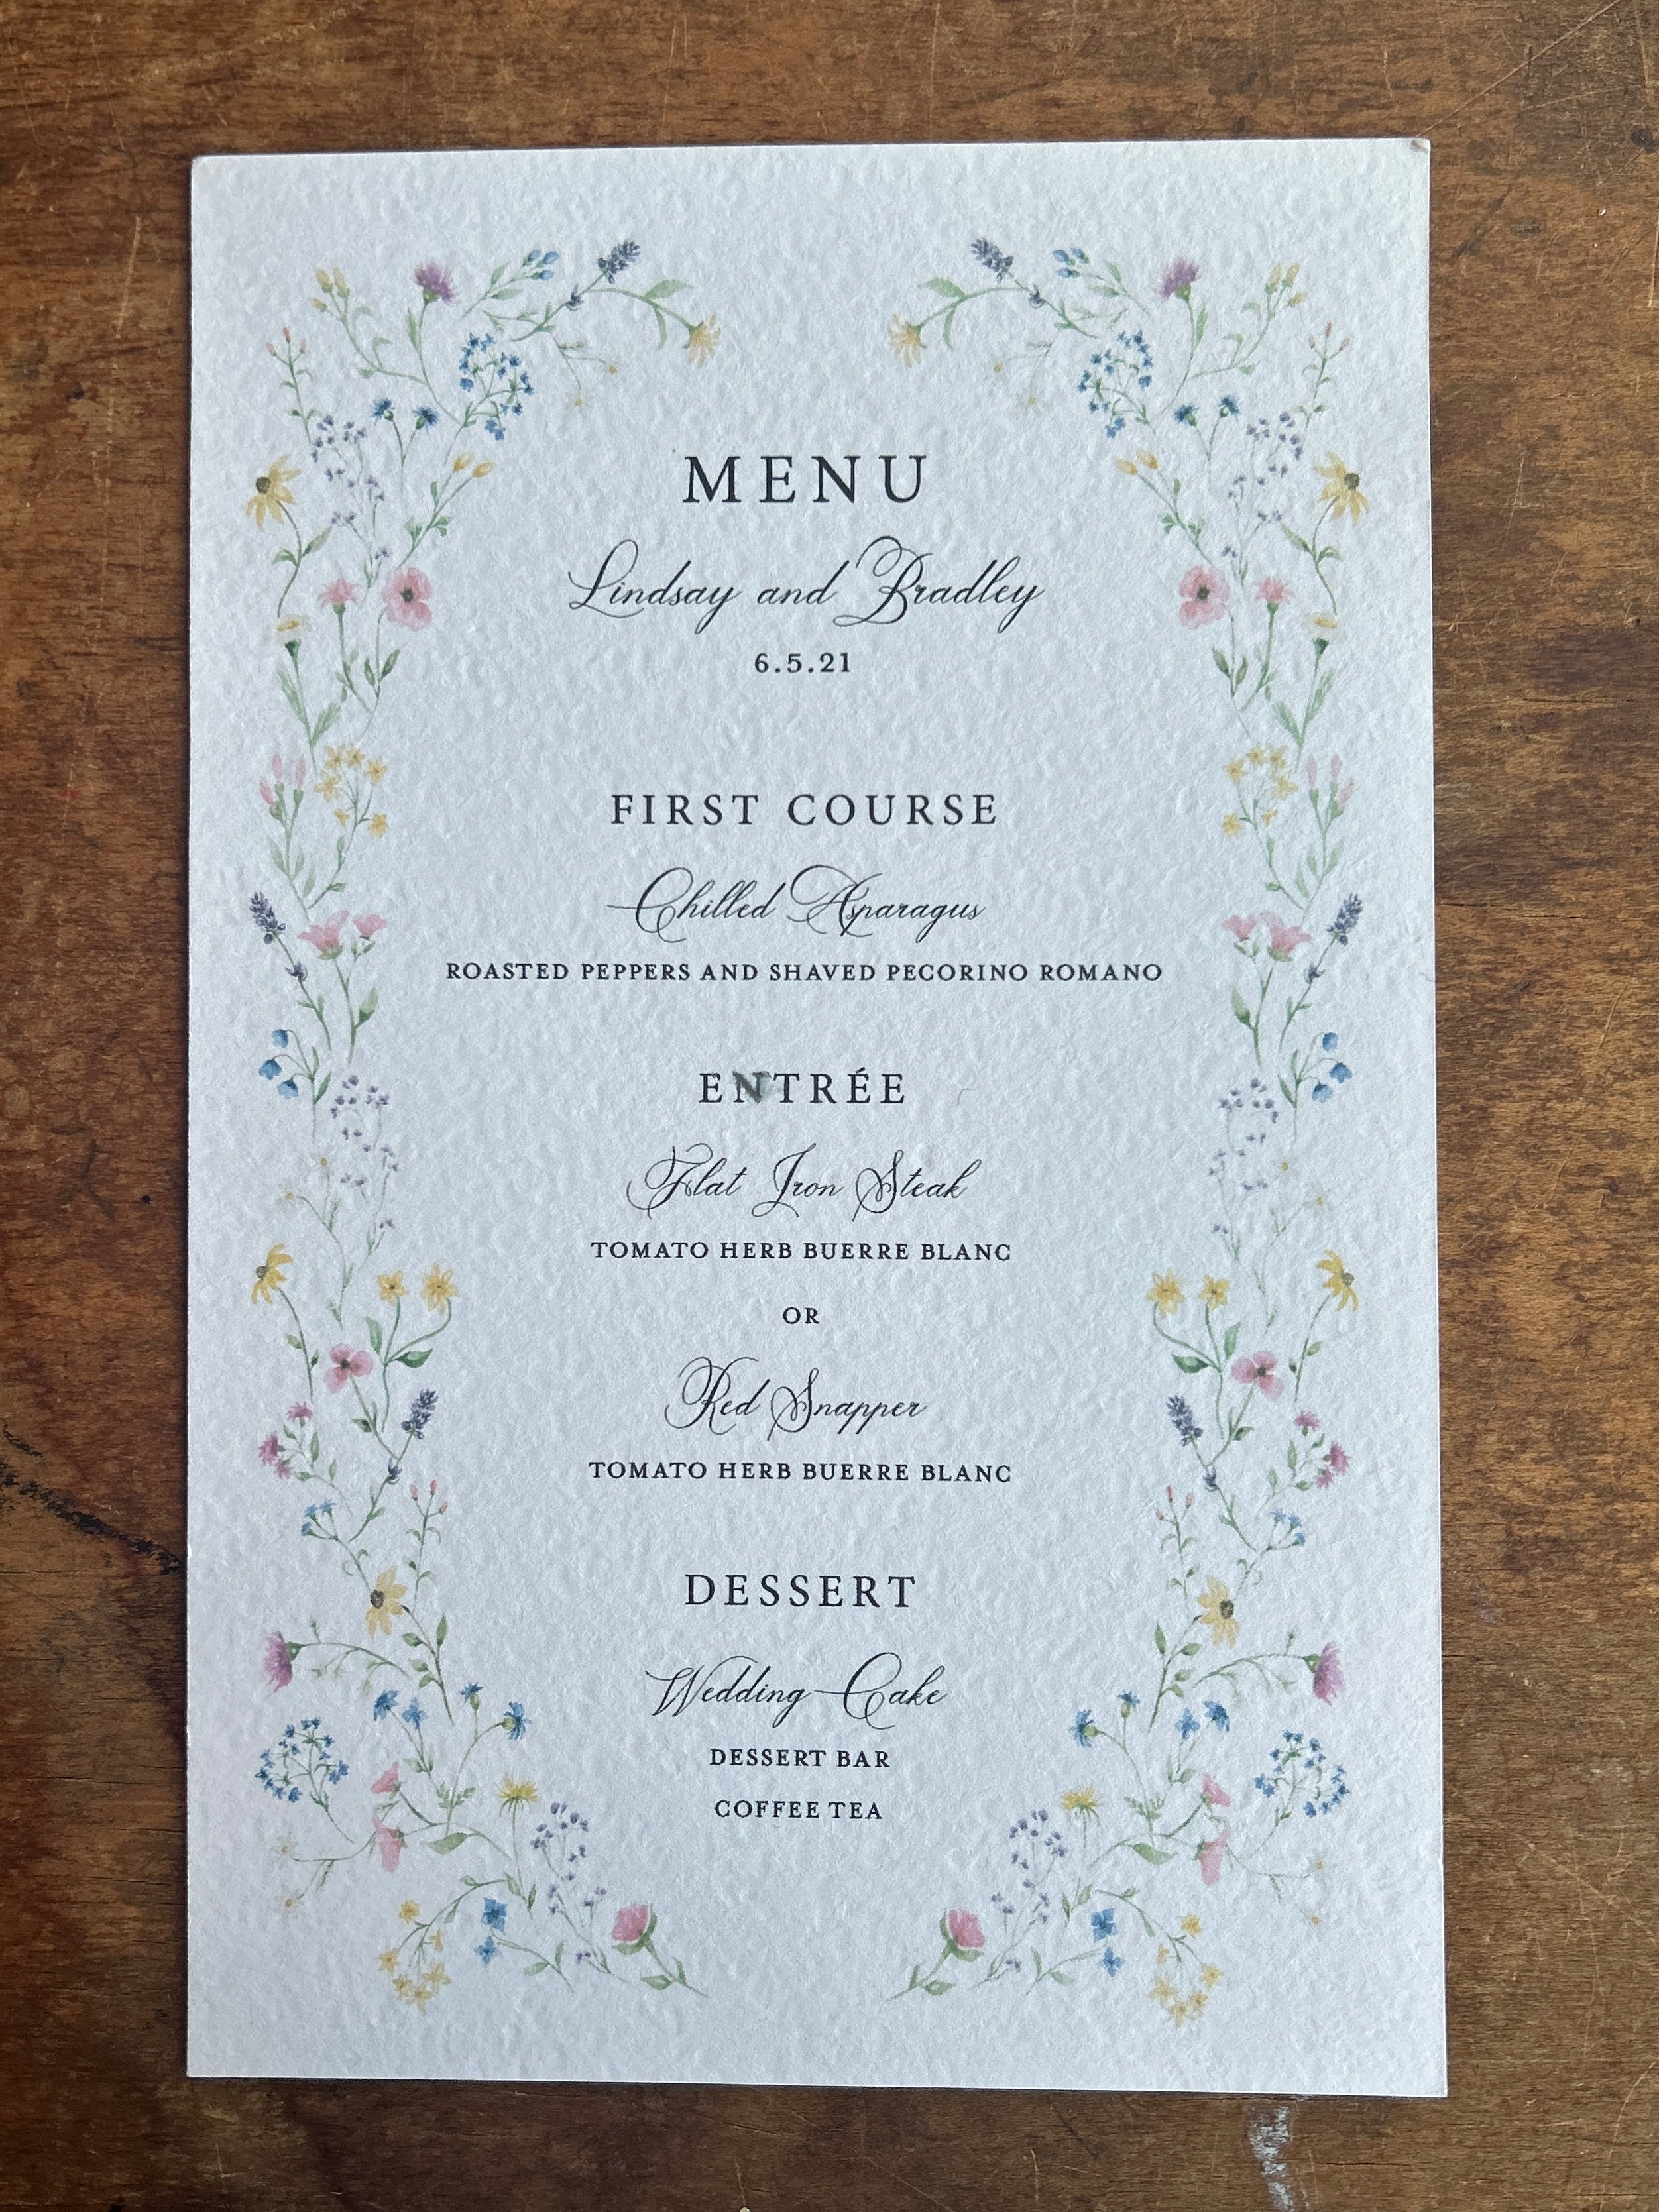 MENU
Lindsay and Bradley
6.5.21
FIRST COURSE
Chilled Asparagus
ROASTED PEPPERS AND SHAVED PECORINO ROMANO
ENTRÉE
Flat Iron Steak
TOMATO HERB BUERRE BLANC
OR
Red Snapper
TOMATO HERB BUERRE BLANC
DESSERT
Wedding Cake
DESSERT BAR
COFFEE TEA